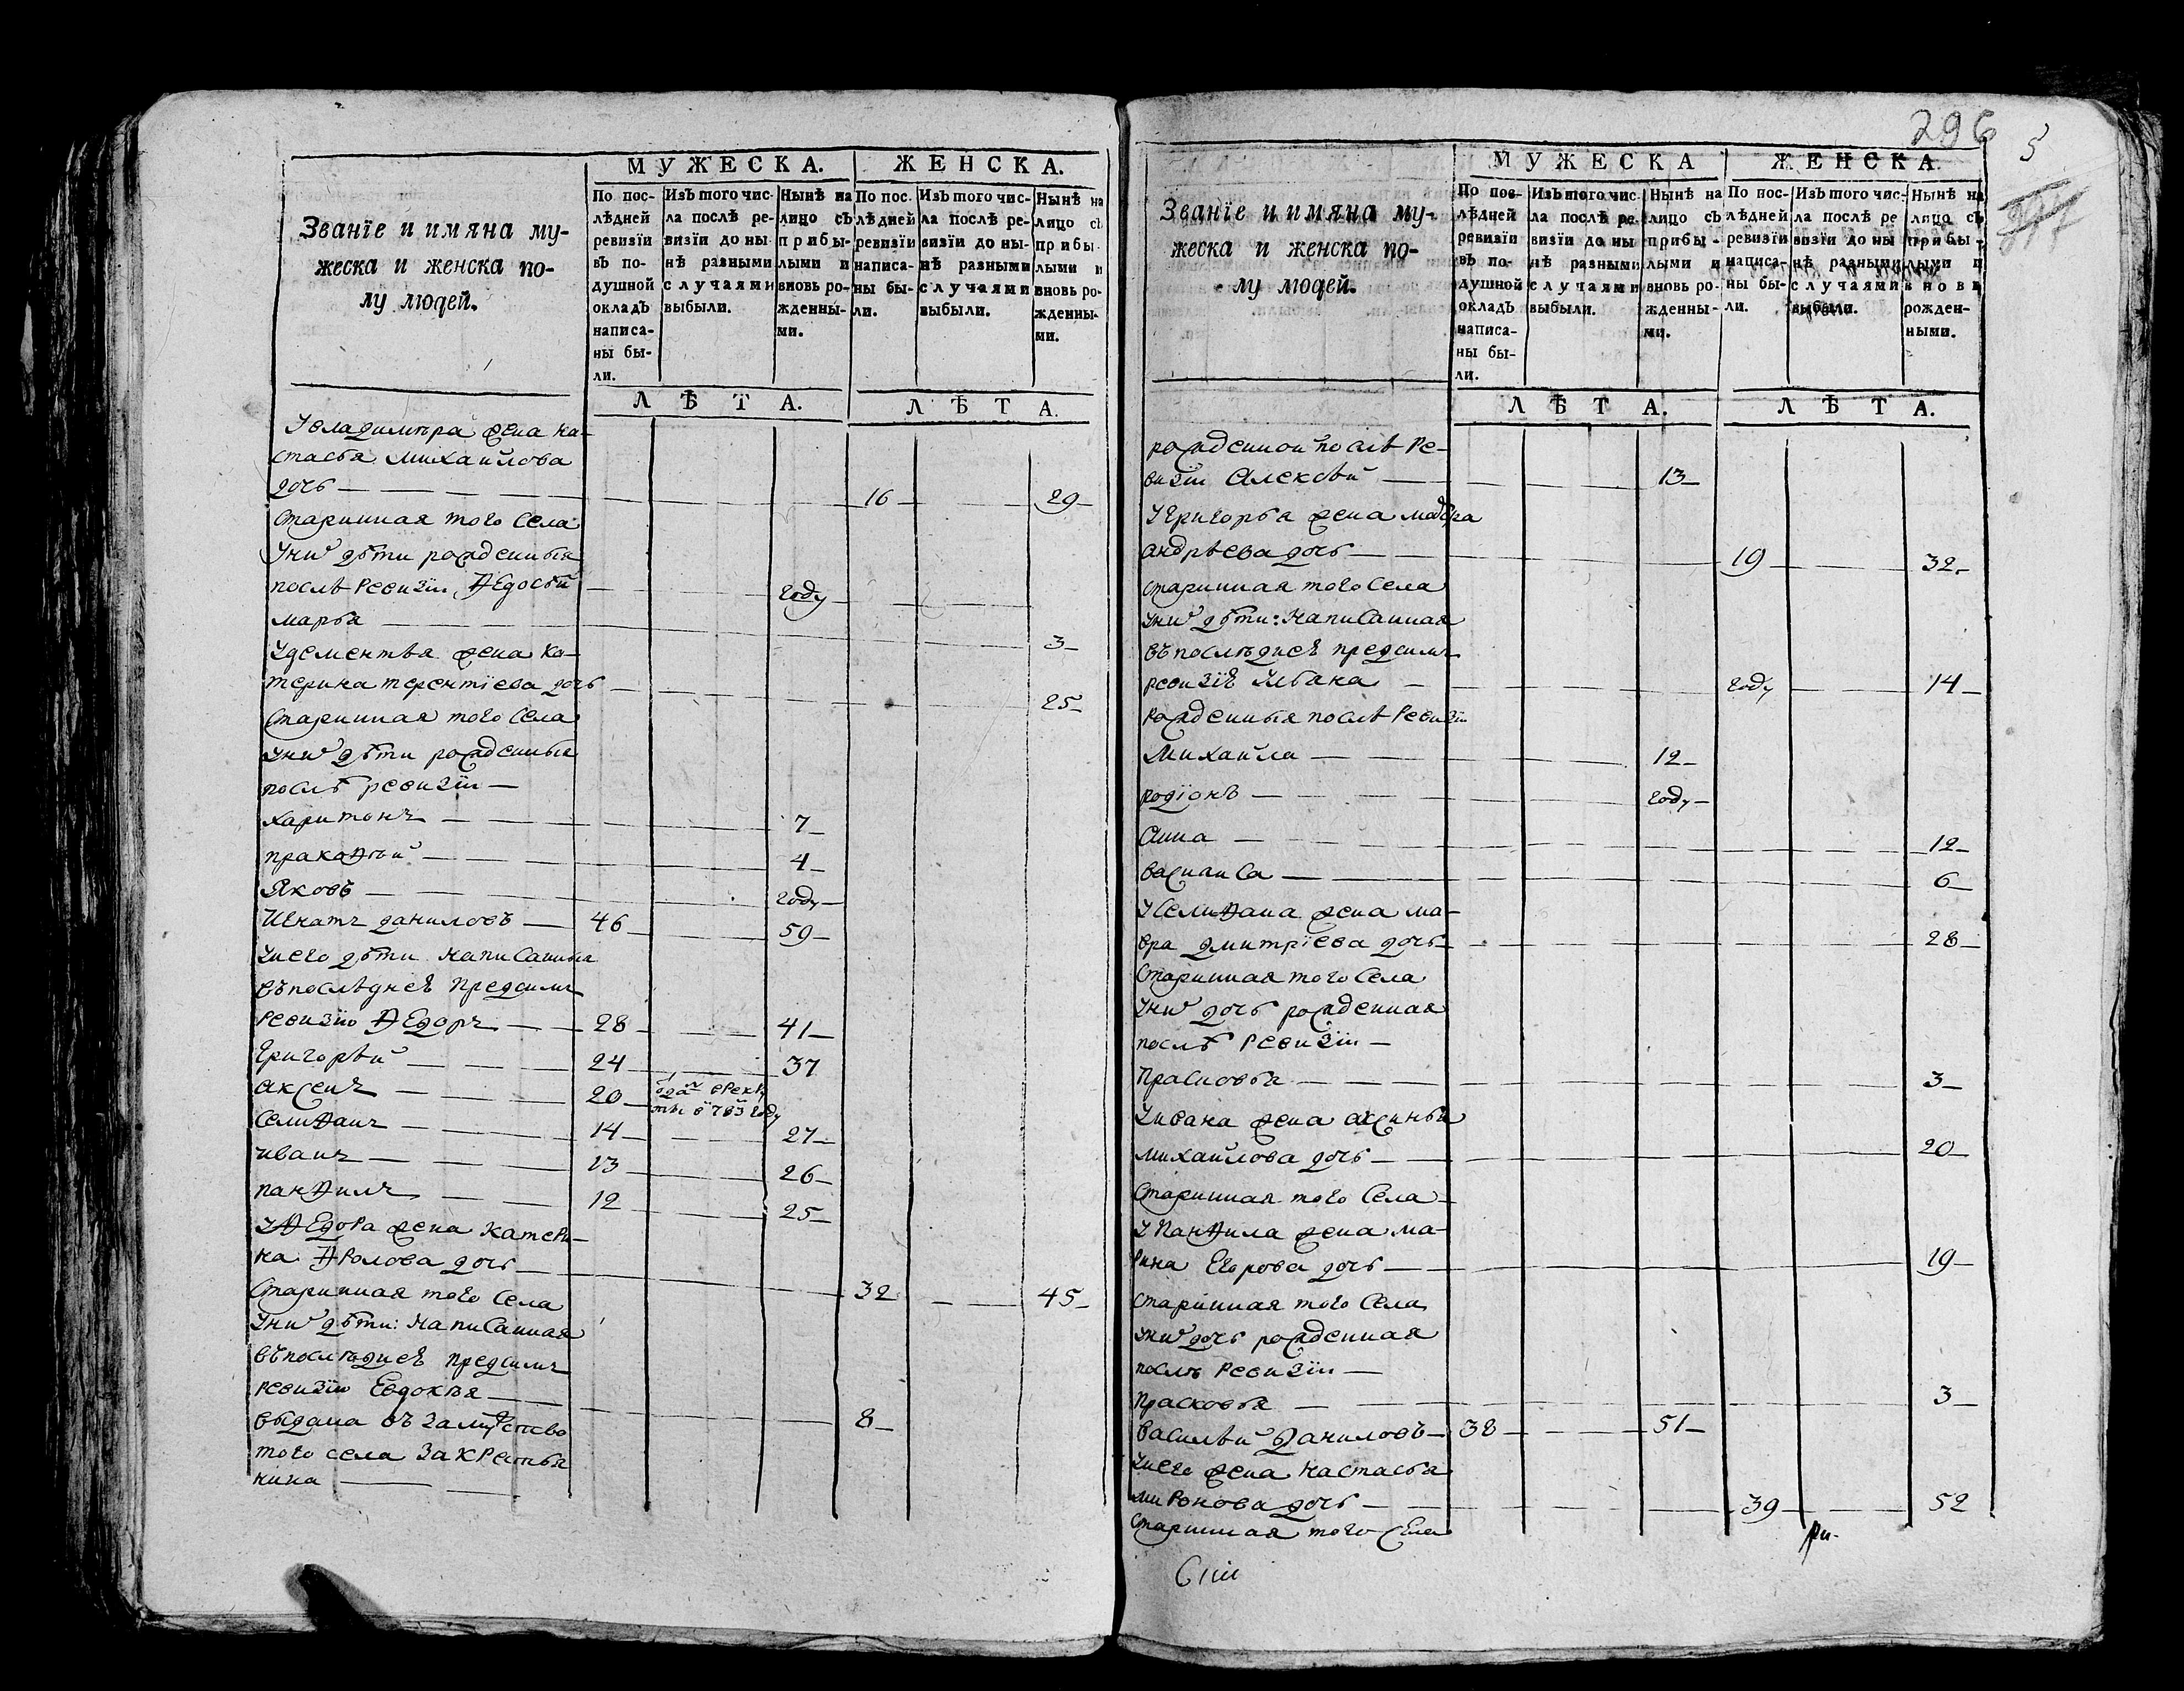 МУЖЕСКА. ЖЕНСКА.
Званїе и имяна му-
жеска и женска по-
лу людей.
По пос-
лѣдней
ревизїи
въ по-
душной
окладъ
написа-
ны бы-
ли.
Изъ того чис-
ла послѣ ре-
визїи до ны-
нѣ разными
случаями
выбыли.
Нынѣ на
лицо съ
прибы-
лыми и
вновь ро-
жденны-
ми.
По пос-
лѣдней
ревизїи
написа-
ны бы-
ли.
Изъ того чис-
ла послѣ ре-
визїи до ны-
нѣ разными
случаями
выбыли.
Нынѣ на
лицо съ
прибы-
лыми и
вновь ро-
жденны-
ми.
ЛѢТА. ЛѢТА.
Увладимѣра жена на-
стасья михайлова
дочь 16 29
Старинная того села
Унихъ дѣти рожденныя
послѣ Ревизїи Ѳедосѣй году
марья 3
Удементья жена ка-
терина терентїева дочь 25
Старинная того села
Унихъ дѣти рожденныя
послѣ ревизїи
харитонъ 7
пракофѣй 4
Яковъ году
Игнатъ даниловъ 46 59
Унего дѣти написанныя
въпослѣдней предсимъ
ревизїю Ѳедоръ 28 41
Григорѣй 24 37
аксенъ 20 отданъ врекру
ты в 783 году
селифанъ 14 27
иванъ 13 26
панфилъ 12 25
УѲедора жена катери-
на Фролова дочь 32 45
Старинная того села
Унихъ дѣти: написанная
въпослѣдней предсимъ
ревизїю Евдокья 8
выдана въ замужество
того села за крестья
нина
296
5
МУЖЕСКА ЖЕНСКА.
Званїе и имяна му-
жеска и женска по-
лу людей.
По пос-
лѣдней
ревизїи
въ по-
душной
окладъ
написа-
ны бы-
ли.
Изъ того чис-
ла послѣ ре-
визїи до ны
нѣ разными
случаями
выбыли.
Нынѣ на
лицо съ
прибы-
лыми и
вновь ро-
жденны-
ми.
По пос-
лѣдней
ревизїи
написа-
ны бы-
ли.
Изъ того чис-
ла послѣ ре
визїи до ны
нѣ разными
случаями
выбыли.
Нынѣ на
лицо съ
прибы-
лыми и
вновь
рожден-
ными.
ЛѢТА. ЛѢТА.
рожденной послѣ Ре-
визїи Алексѣй 13
Угригорья жена
андрѣева дочь 19 32
старинная того села
Унихъ дѣти: Написанная
въпослѣдней предсимъ
ревизїи Ульяна году 14
Рожденныя послѣ Ревизїи
Михайла 12
родїонъ году
Анна 12
василиса 6
Уселифана жена ма-
вра дмитрїева дочь 28
Старинная того села
Унихъ дочь рожденная
послѣ Ревизїи
Прасковья 3
Уивана жена аксинья
михайлова дочь 20
Старинная того села
Упанфила жена ма-
рина Егорова дочь 19
старинная того села
Унихъ дочь рожденная
послѣ Ревизїи
Прасковья 3
василѣй Даниловъ 38 51
Унего жена настасья
миронова дочь 39 52
Старинная того села